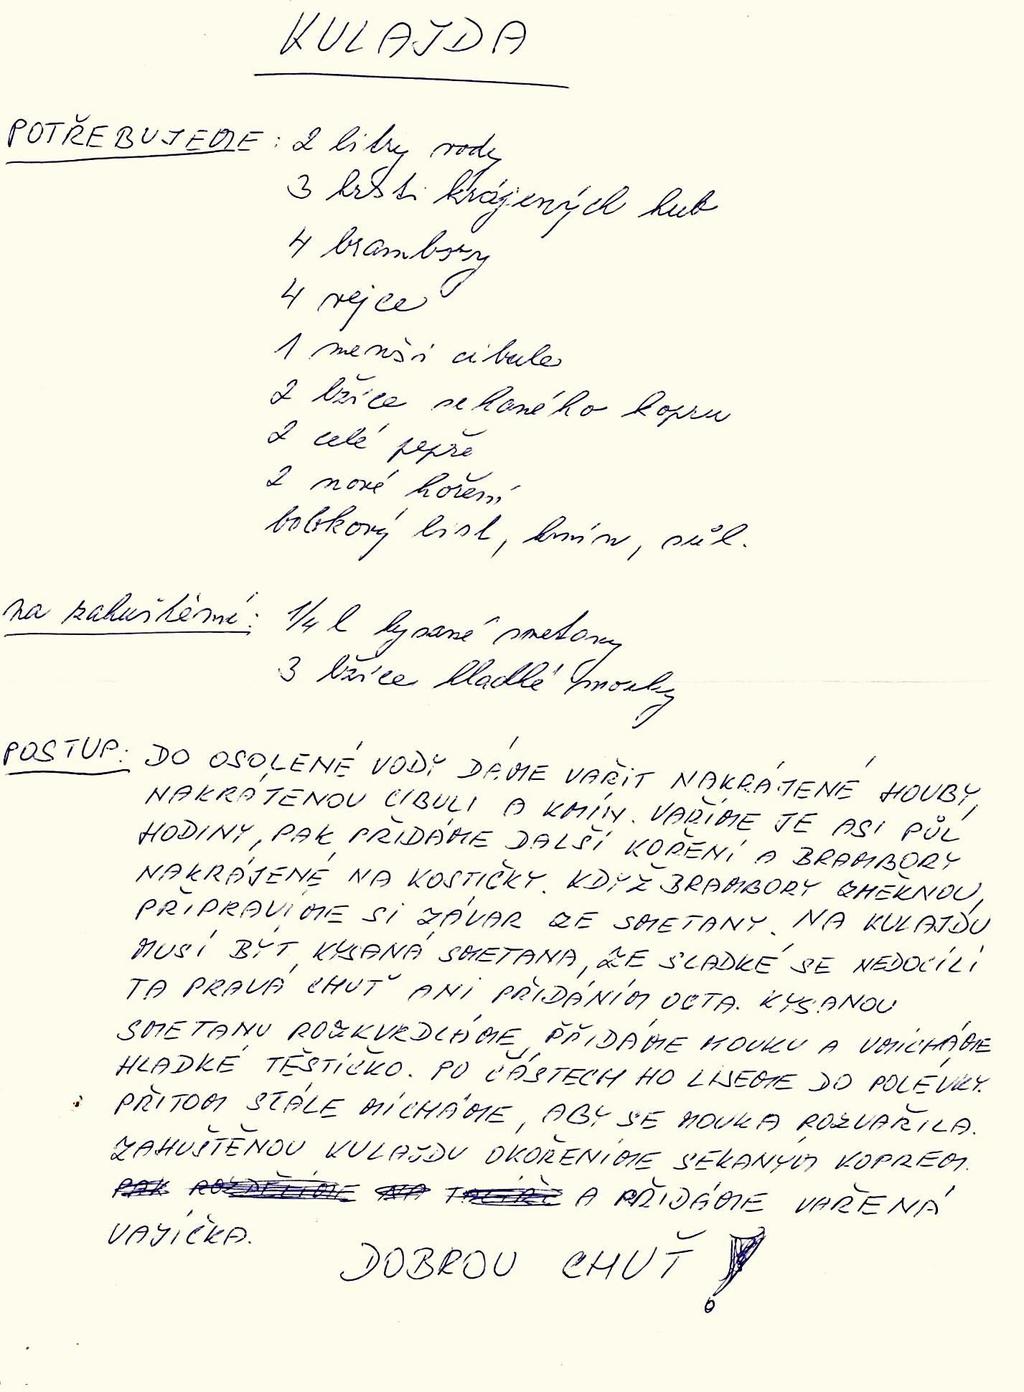 KULAJDA
POTŘEBUJEME: 2 litry vody
3 hrsti krájených hub
4 brambory
4 vejce
1 menší cibule
2 lžíce sekaného kopru
2 celé pepře
2 nové koření
bobkový list, kmín, sůl.
na zahuštění: 1/4 l kysané smetany
3 lžíce hladké mouky
POSTUP: DO OSOLENÉ VODY DÁME VAŘIT NAKRÁJENÉ HOUBY,
NAKRÁJENOU CIBULI A KMÍN. VAŘÍME JE ASI PŮL
HODINY, PAK PŘIDÁME DALŠÍ KOŘENÍ A BRAMBORY
NAKRÁJENÉ NA KOSTIČKY. KDYŽ BRAMBORY ZMĚKNOU,
PŘIPRAVÍME SI ZÁVAR ZE SMETANY. NA KULAJDU
MUSÍ BÝT KYSANÁ SMETANA, ZE SLADKÉ SE NEDOCÍLÍ
TA PRAVÁ CHUŤ ANI PŘIDÁNÍM OCTA. KYSANOU
SMETANU ROZKVRDLÁME, PŘIDÁME MOUKU A UMÍCHÁME
HLADKÉ TĚSTÍČKO. PO ČÁSTECH HO LIJEME DO POLÉVKY.
PŘITOM STÁLE MÍCHÁME, ABY SE MOUKA ROZVAŘILA.
ZAHUŠTĚNOU KULAJDU OKOŘENÍME SEKANÝM KOPREM
PAK ROZDĚLÍME NA TALÍŘE A PŘIDÁME VAŘENÁ
VAJÍČKA.
DOBROU CHUŤ!